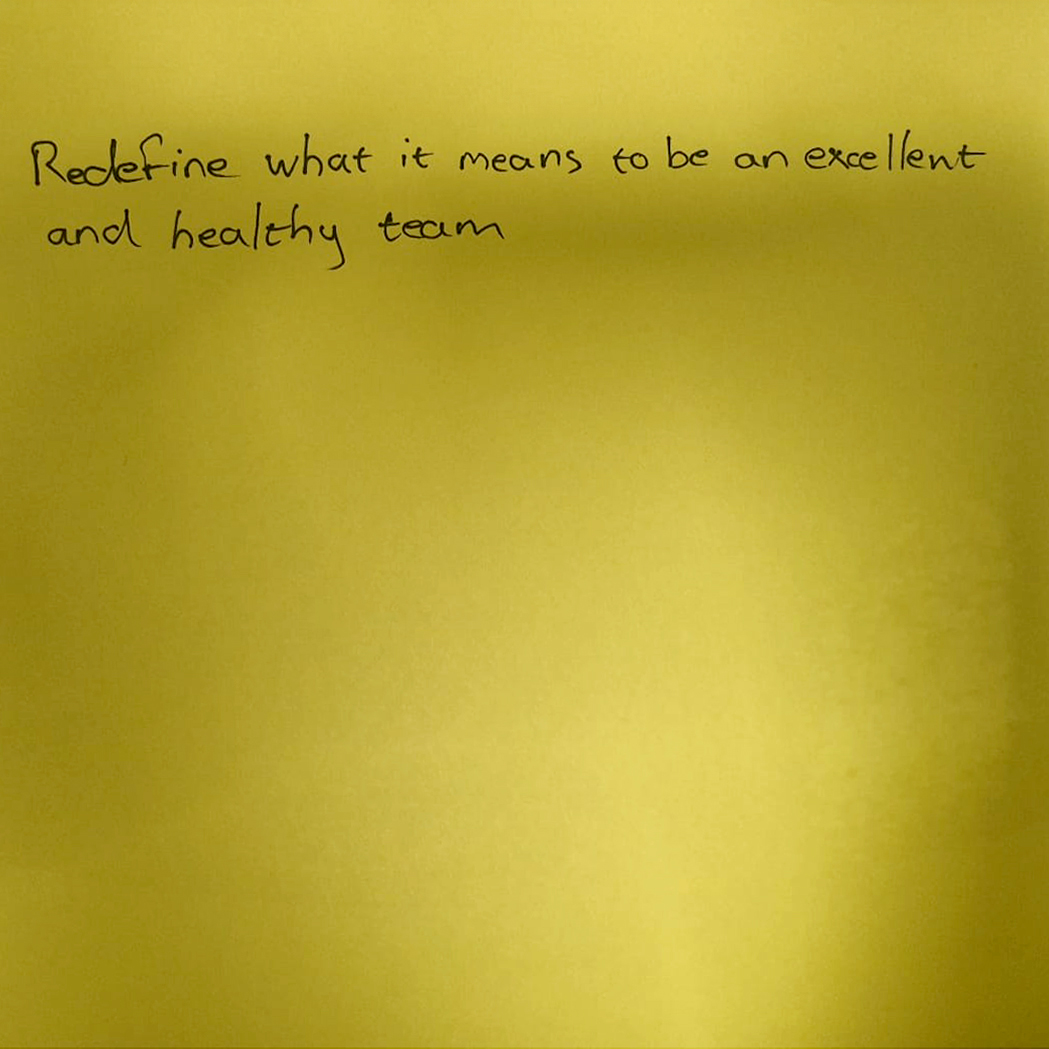 Redefine what it means to be an excellent
and healthy team